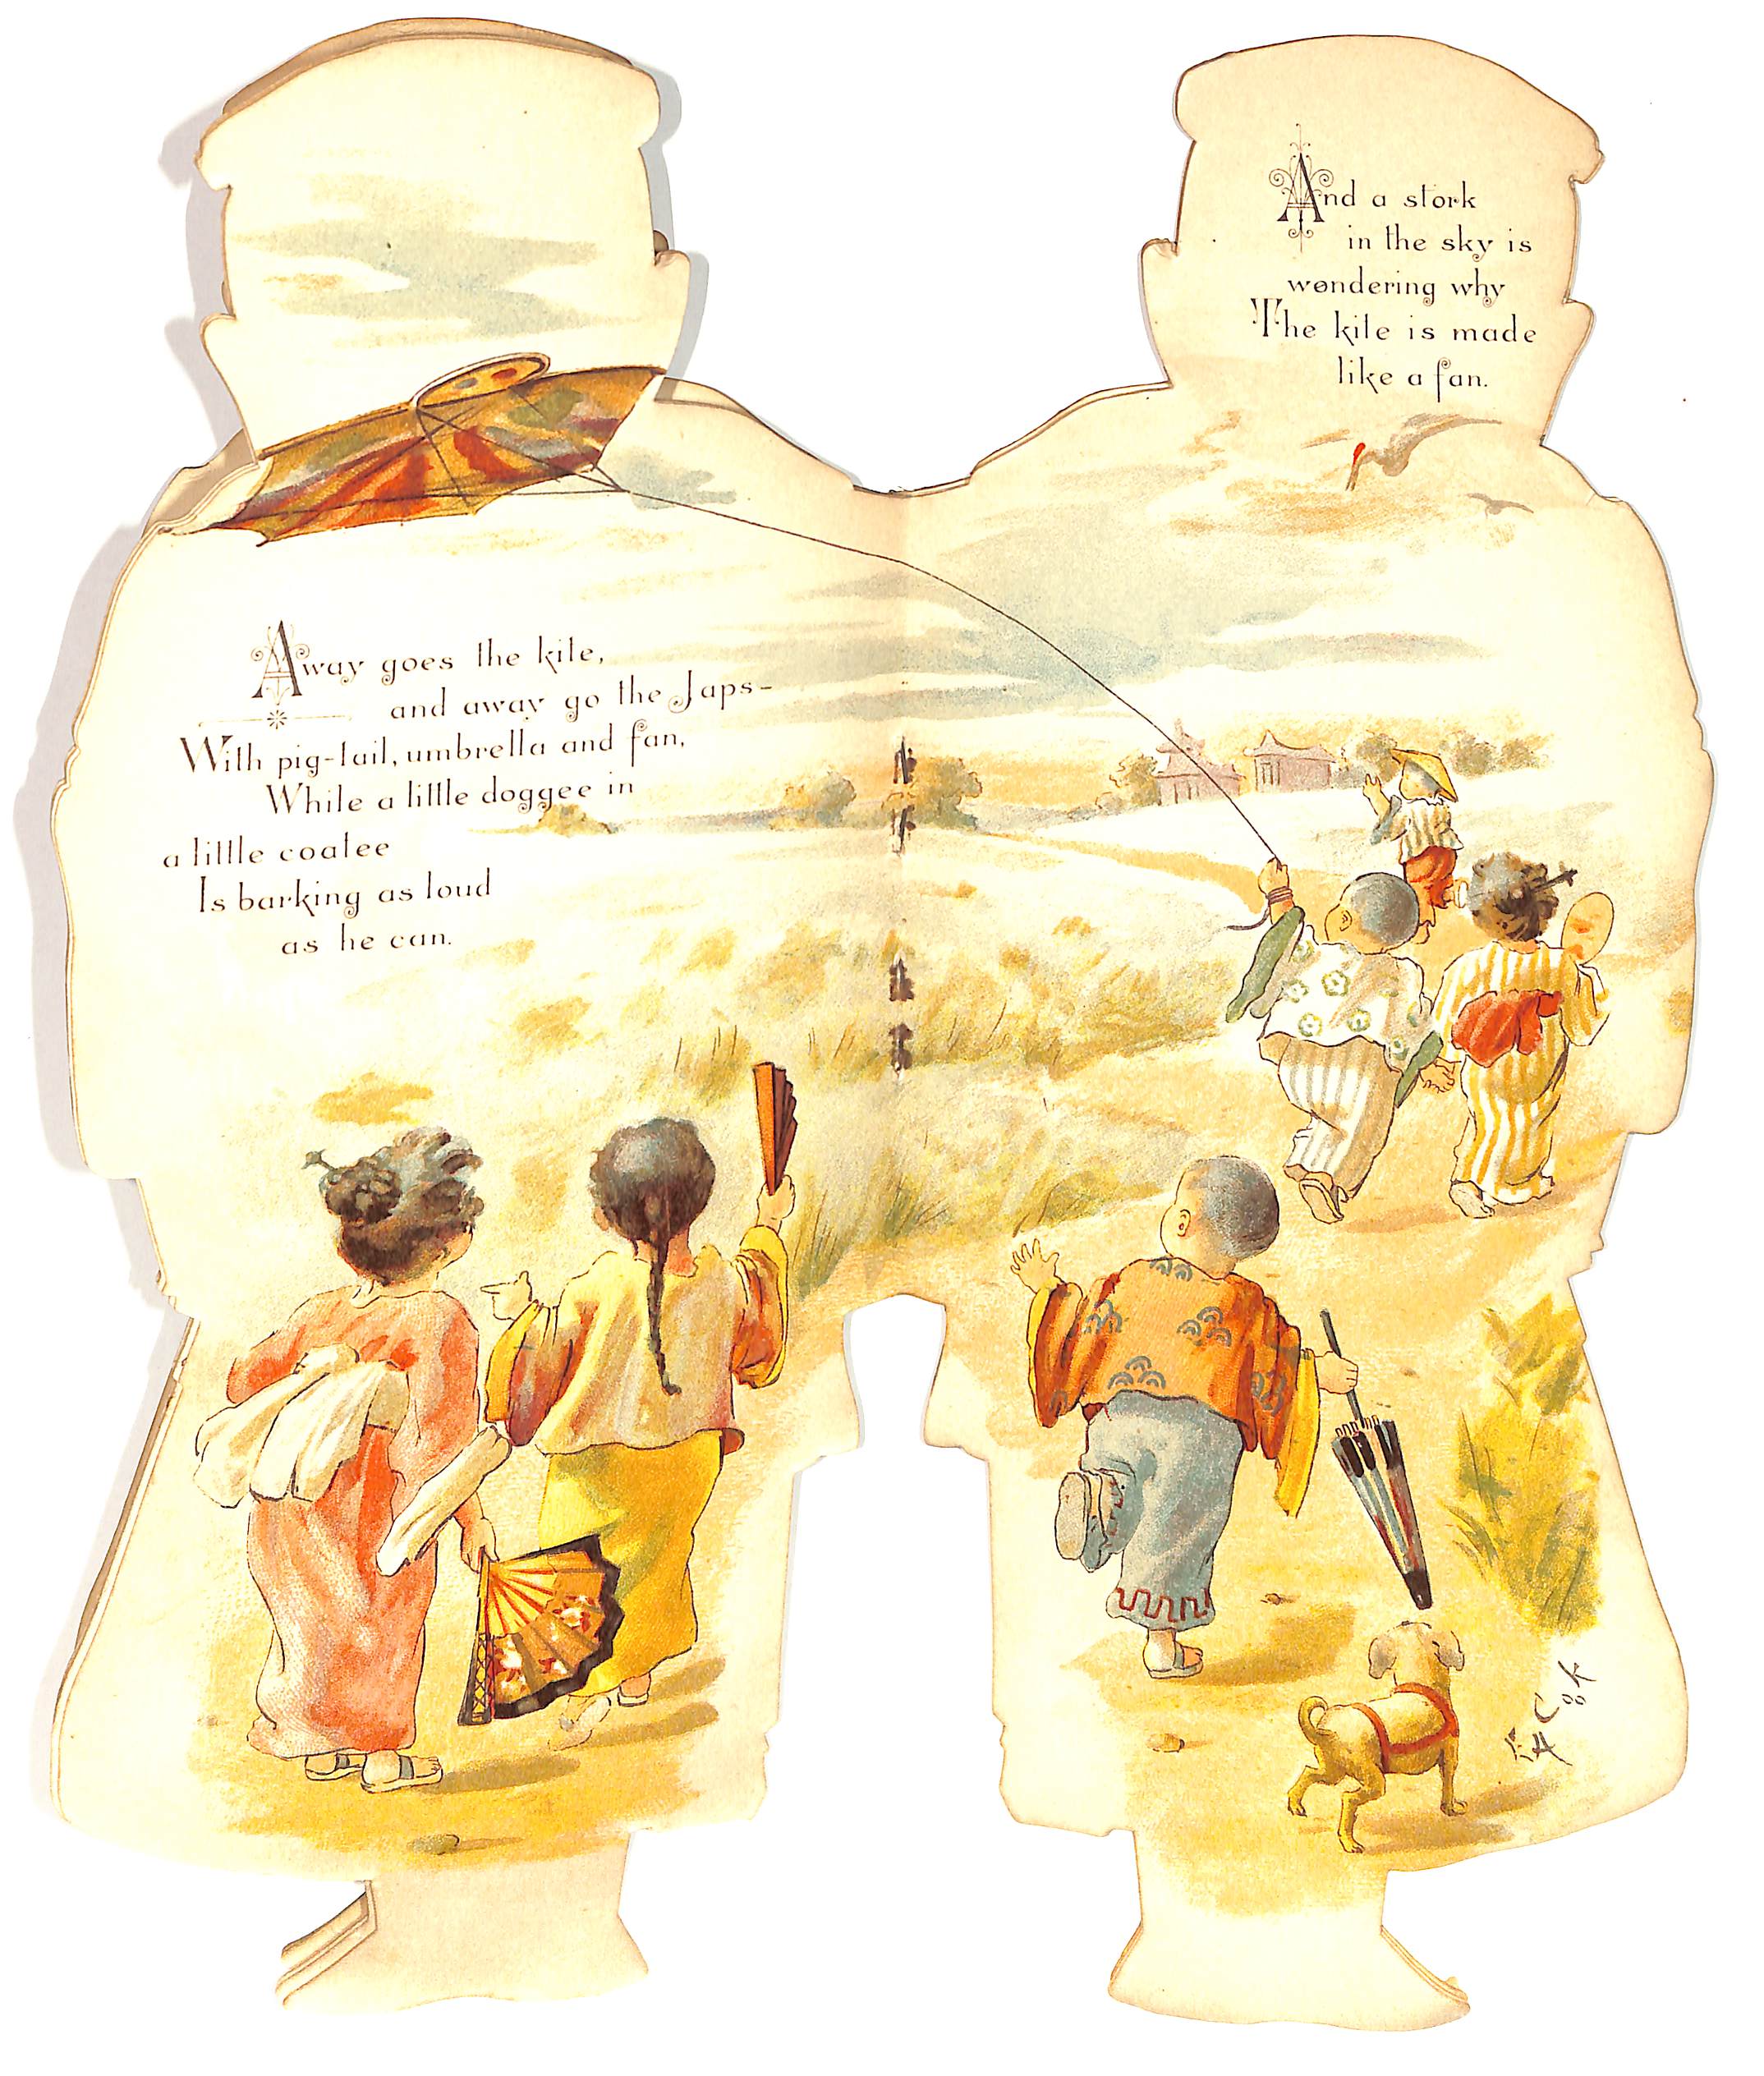 Away goes the kite,
and away go the Japs-
With pig-tail, umbrella and fan,
While a little doggee in
a little coatee
Is barking as loud
as he can.
And a stork
in the sky is
wondering why
The kite is made
like a fan.
EA Cook